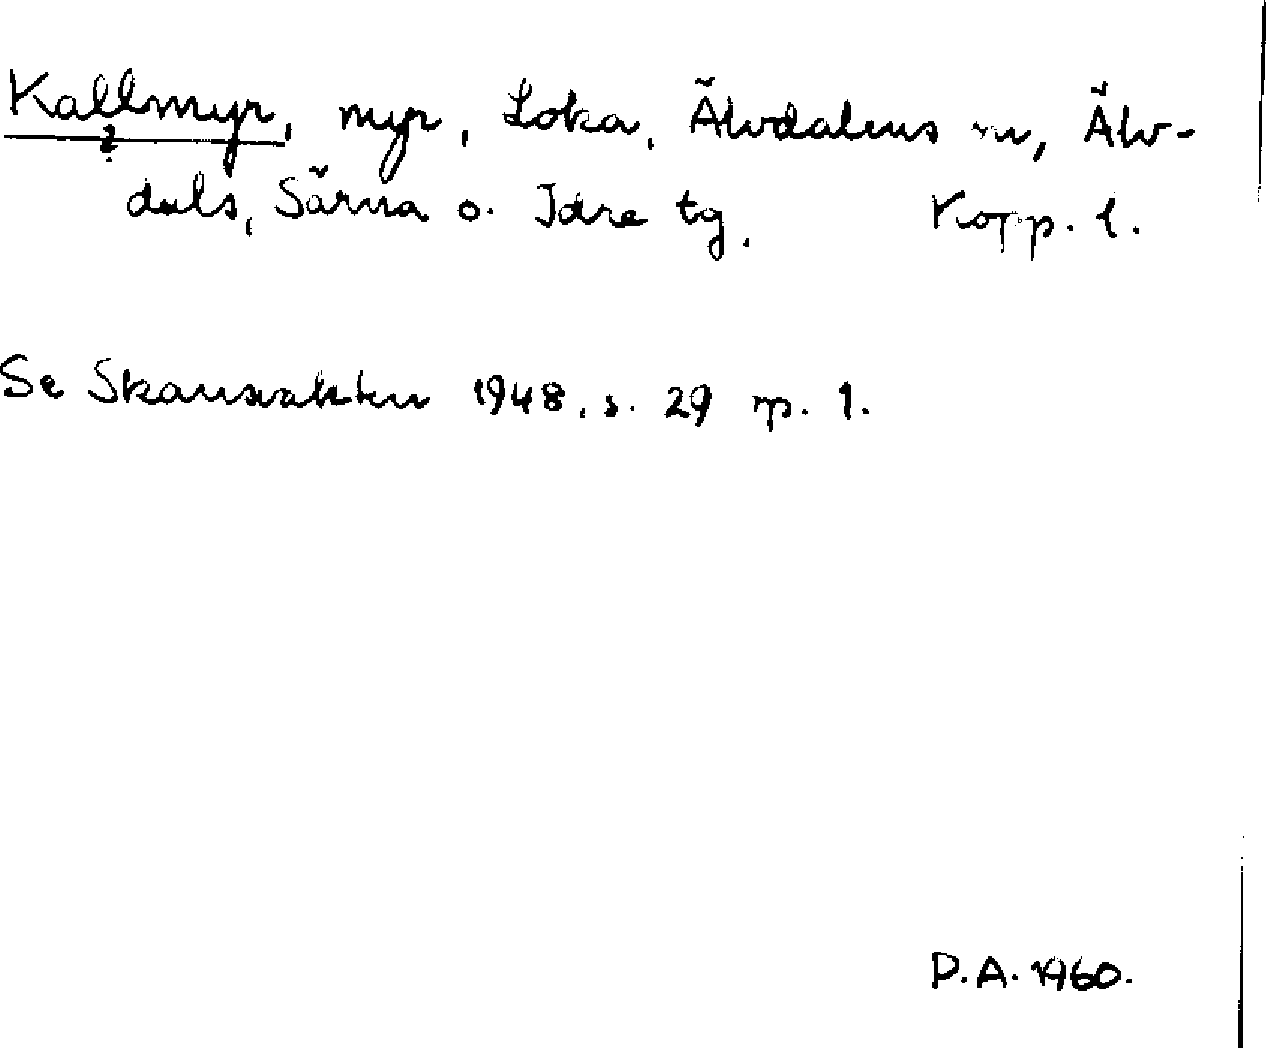 Kallmyr, myr, Loka, Älvdalens sn, Älv-
dals, Särna o. Idre tg. Kopp. l.
Se Skansvakten 1948, s. 29 sp. 1.
D.A. 1960.